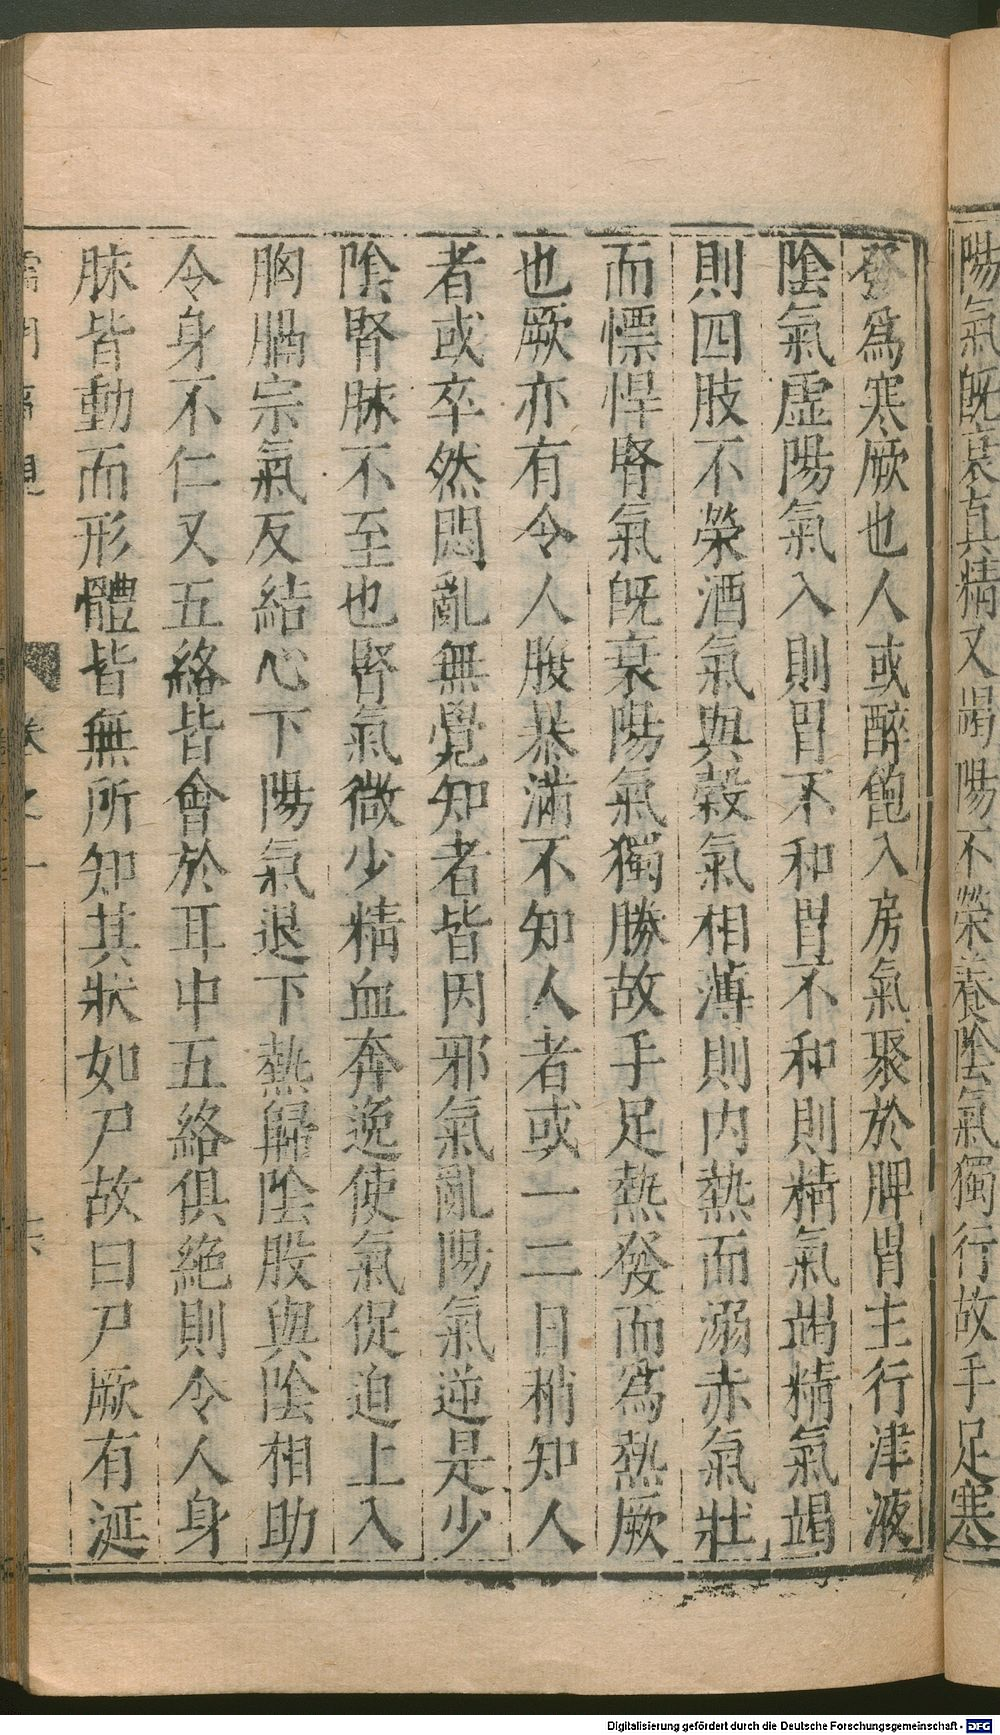 陽氣旣衰眞精又竭陽不榮養陰氣獨行故手足寒
發爲寒厥也人或醉飽入房氣聚於脾胃主行津液
陰氣虛陽氣入則胃不和胃不和則精氣竭精氣竭
則四肢不榮酒氣與穀氣相薄則内熱而溺赤氣壯
而慓悍腎氣旣衰陽氣獨勝故手足熱發而爲熱厥
也厥亦有令人腹暴滿不知人者或一二日稍知人
者或卒然悶亂無覺知者皆因邪氣亂陽氣逆是少
陰腎脉不至也腎氣微少精血奔逸使氣促迫上入
胸膈宗氣反結心下陽氣退下熱歸陰股與陰相助
令身不仁又五絡皆會於耳中五絡俱絶則令人身
脉皆動而形體皆無所知其狀如尸故曰尸厥有涎
卷之一
Digitalisierung gefördert durch die Deutsche Forschungsgemeinschaft - DFG